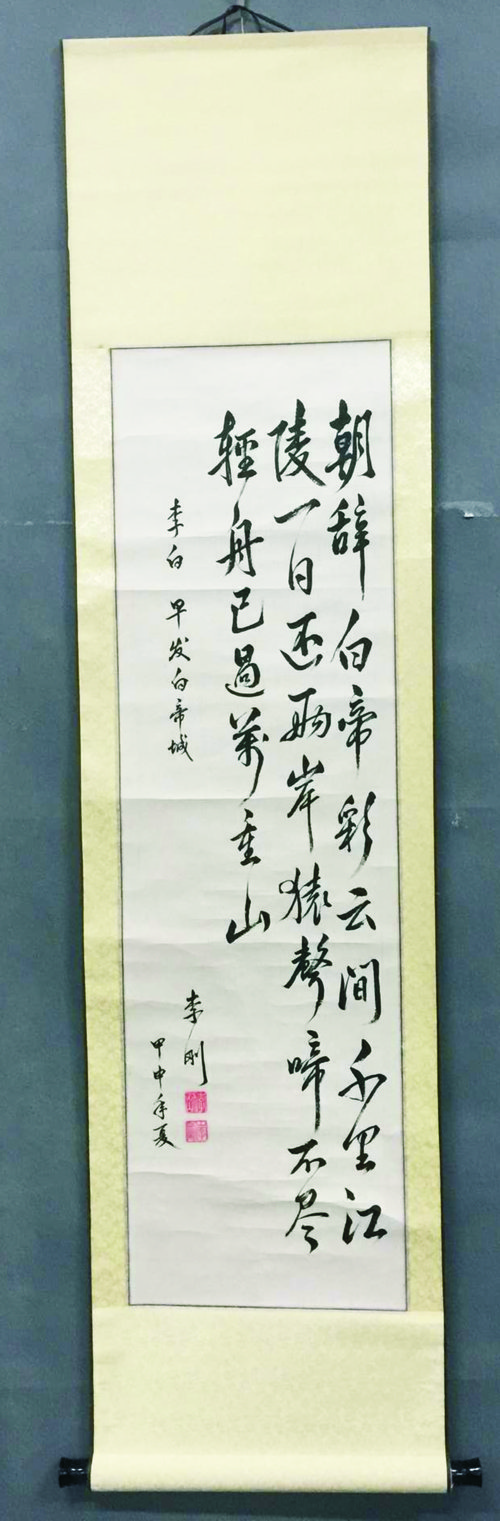 朝辞白帝彩云間千里江
陵一日还兩岸猿聲啼不尽
輕舟已過萬重山
李白 早发白帝城
李刚
甲申年夏